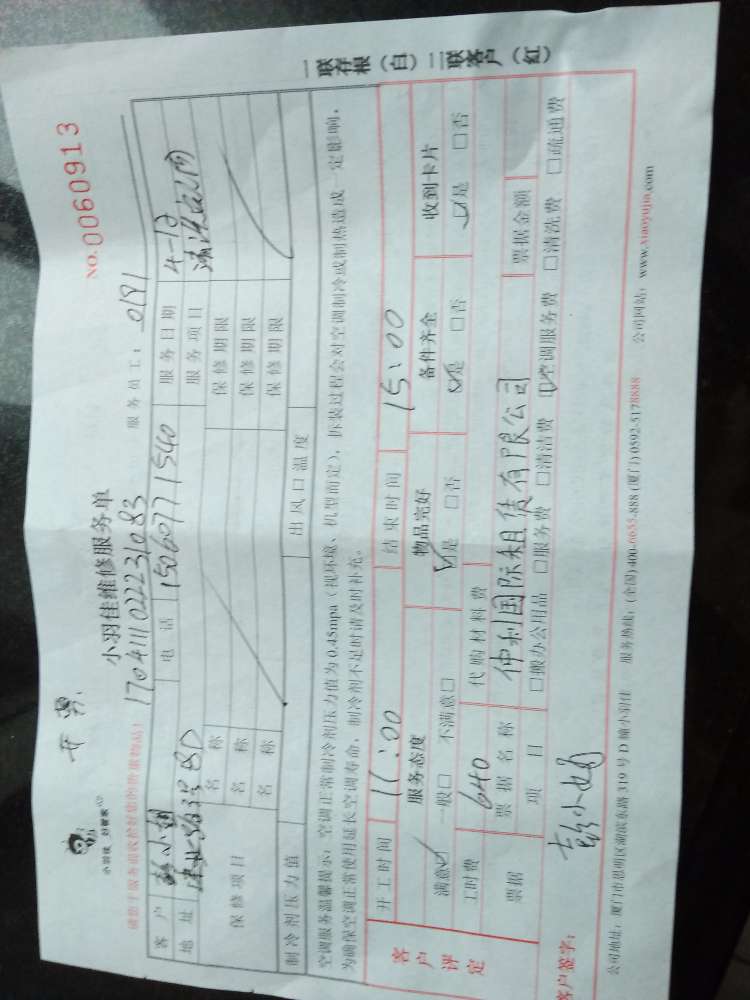 小羽佳 好管家
开票
小羽佳维修服务单
NO.0060913
17041110222231083
服务员工:0191
请您于服务前收拾好您的贵重物品!
客户 电话 15060771540 服务日期 4-12
地址 服务项目
保修项目 名称 保修期限
名称 保修期限
名称 保修期限
制冷剂压力值 出风口温度
空调服务温馨提示:空调正常制冷剂压力值为0.45mpa(视环境、机型而定),拆装过程会对空调制冷或制热造成一定影响,
为确保空调正常使用延长空调寿命,制冷剂不足时请及时补充。
客户评定
开工时间 11:00 结束时间 15:00
服务态度 物品完好 备件齐全 收到卡片
满意☑ 一般□ 不满意□ ☑是 □否 ☑是 □否 ☑是 □否
工时费 640 代购材料费
票据 票据名称 仲利国际租赁有限公司 票据金额
项目 □搬办公用品 □服务费 □清洁费 ☑空调服务费 □清洗费 □疏通费
客户签字:
公司地址:厦门市思明区湖滨东路319号D幢小羽佳 服务热线:(全国)400-6655-888 (厦门)0592-5178888 公司网站:www.xiaoyujia.com
一联存根(白) 二联客户(红)